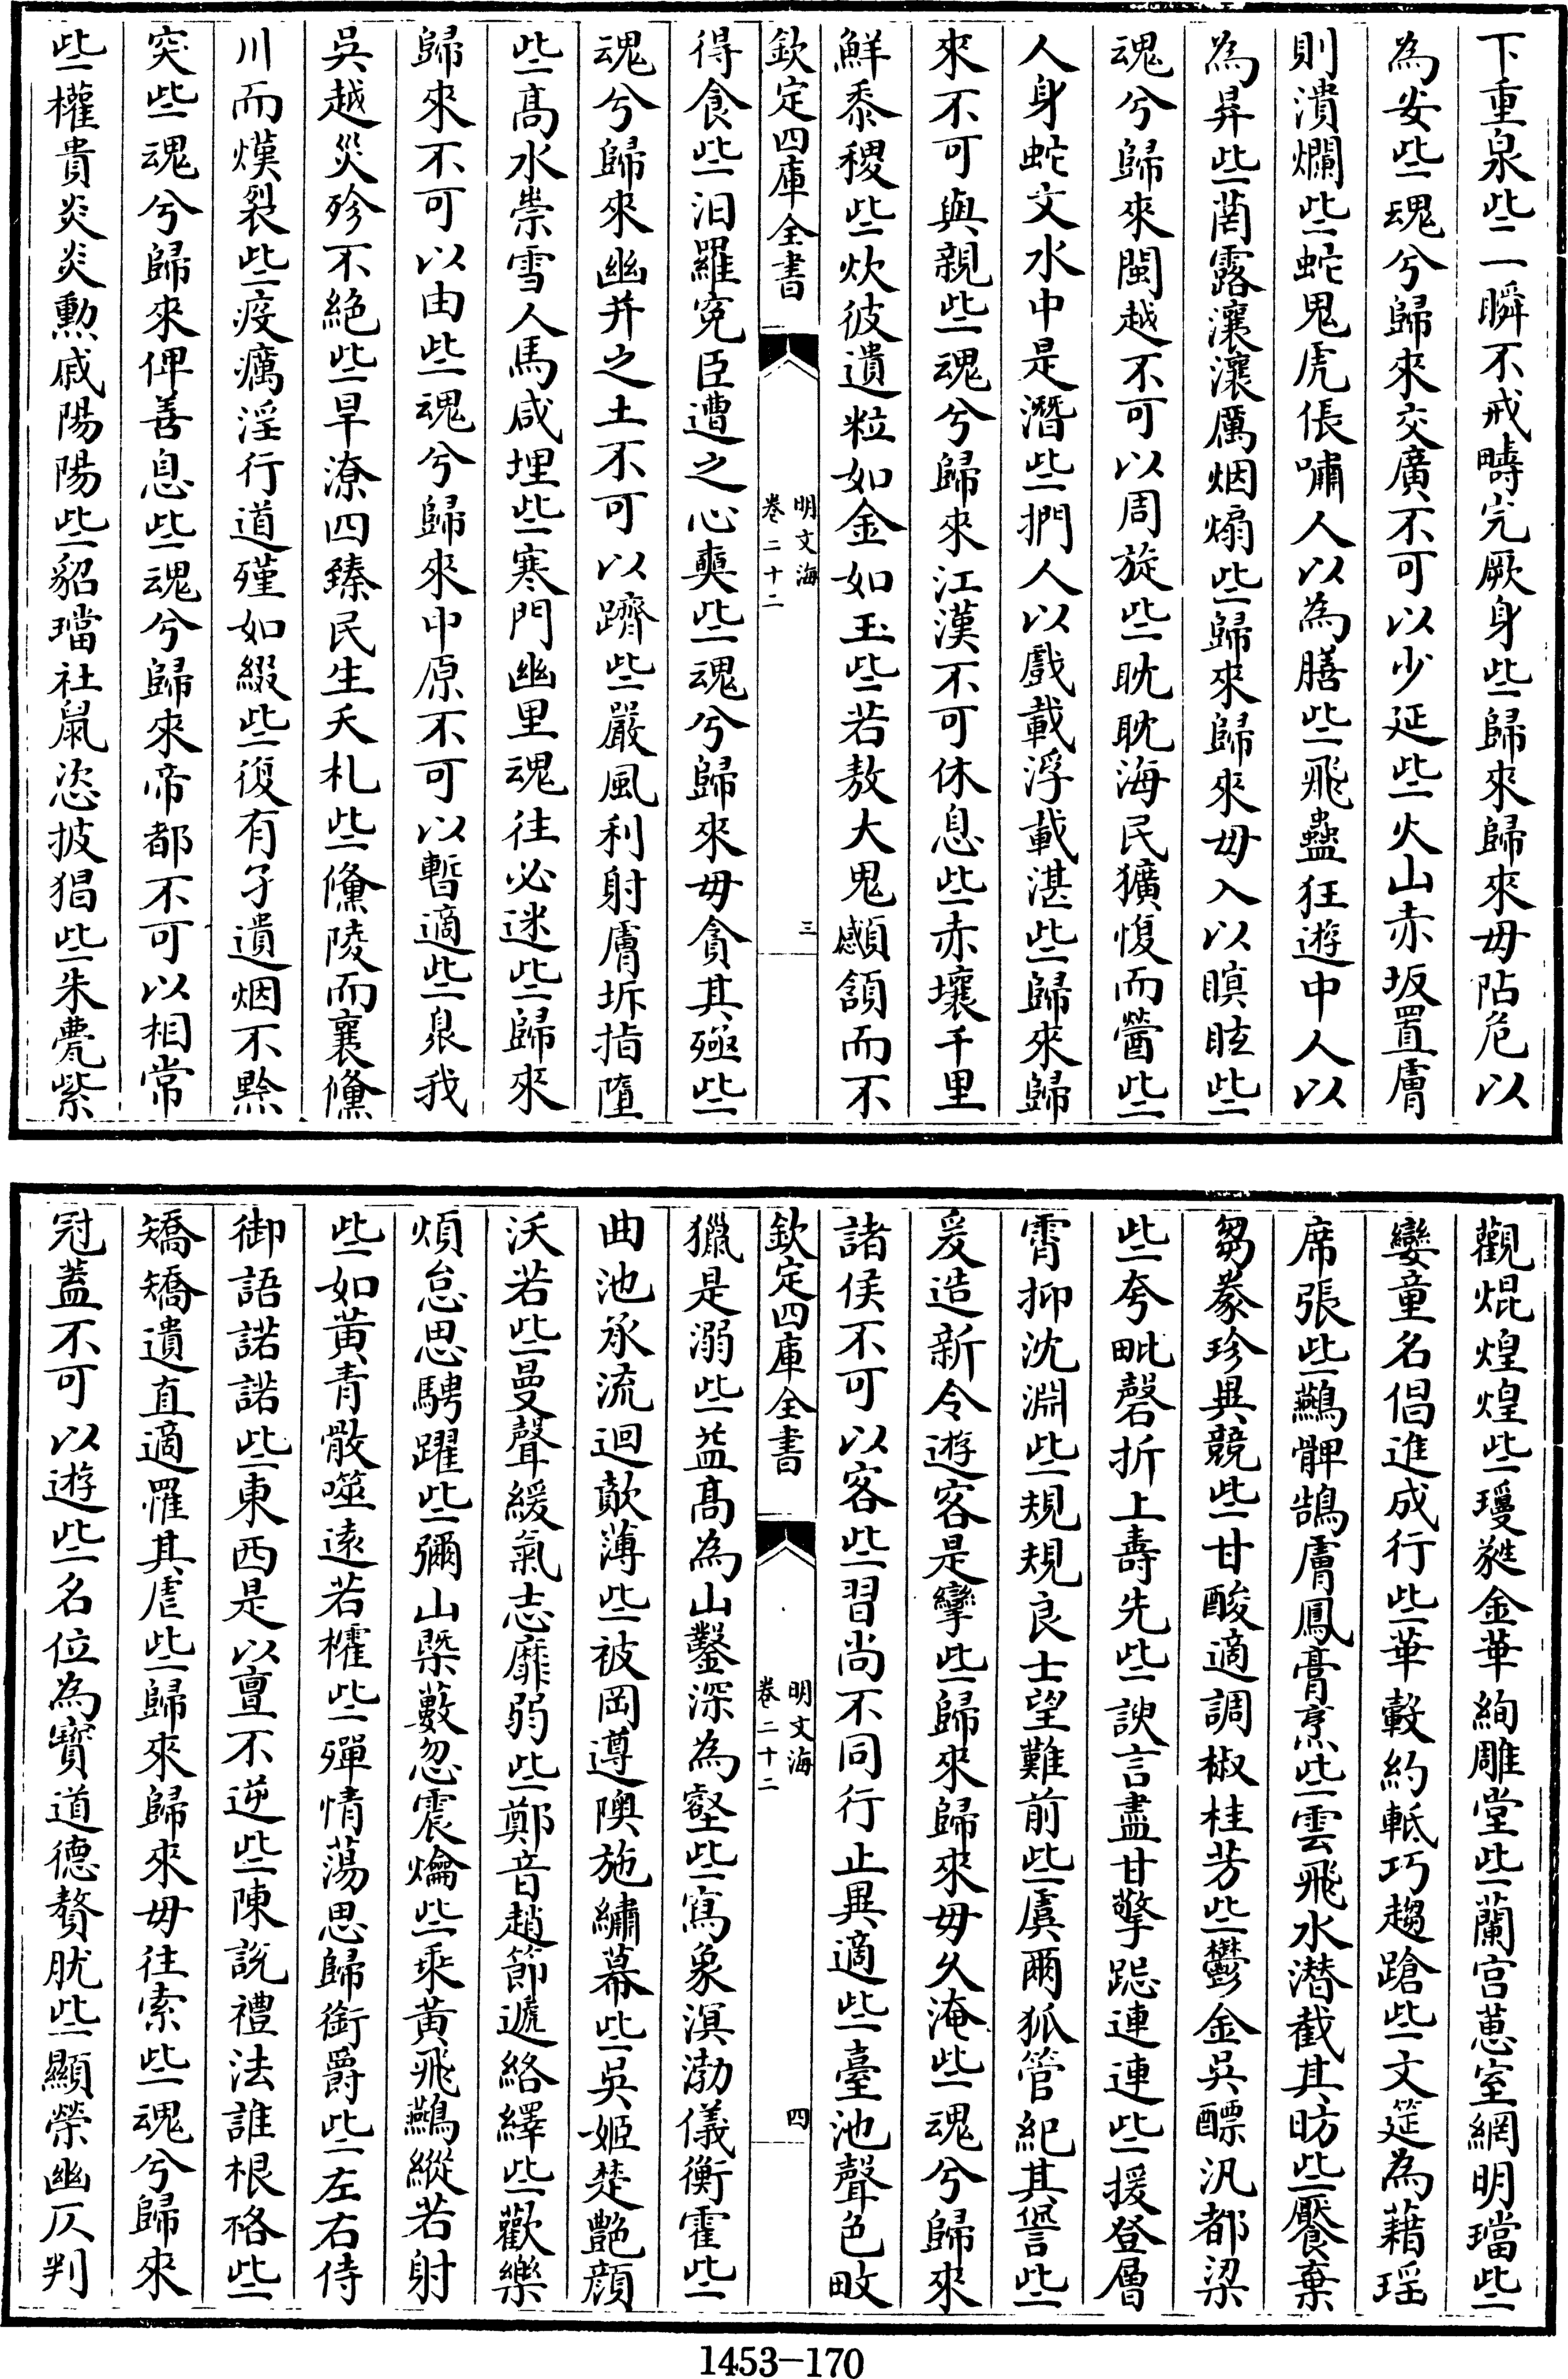 下重泉些一瞬不戒疇完厥身些歸來歸來毋阽危以
為安些魂兮歸來交廣不可以少延些火山赤坂置膚
則潰爛些蛇鬼虎倀嘯人以為膳些飛蠱狂遊中人以
為昇些菌露瀼瀼厲烟煽些歸來歸來毋入以瞑眩些
魂兮歸來閩越不可以周旋些眈眈海民獷愎而醟些
人身蛇文水中是潛些捫人以戲載浮載湛些歸來歸
來不可與親些魂兮歸來江漢不可休息些赤壤千里
鮮黍稷些炊彼遺粒如金如玉些若敖大鬼顑頷而不
欽定四庫全書
明文海
卷二十二
三
得食些汨羅寃臣遭之心奭些魂兮歸來毋貪其殛些
魂兮歸來幽并之土不可以躋些嚴風利射膚坼指墮
些高水崇雪人馬咸埋些寒門幽里魂往必迷些歸來
歸來不可以由些魂兮歸來中原不可以暫適些哀我
吳越災殄不絕些旱潦四臻民生夭札些儵陵而襄儵
川而熯裂些疫癘淫行道殣如綴些復有孑遺烟不黔
突些魂兮歸來俾善息些魂兮歸來帝都不可以相常
些權貴炎炎勲戚陽陽些貂璫社鼠恣披猖些朱甍紫
觀焜煌煌些瓊甤金華絢雕堂些蘭宫蕙室網明璫些
孌童名倡進成行些華轂約軧巧趨蹌些文筵為藉瑶
席張些鷀髀鵠膚鳳膏烹些雲飛水潜截其昉些饜棄
芻豢珍異競些甘酸適調椒桂芳些鬱金吳醥汎都梁
些夸毗磬折上壽先些諛言盡甘擎跽連連些援登層
霄抑沈淵些規規良士望難前些虞爾狐管紀其諐些
爰造新令遊客是攣些歸來歸來毋久淹些魂兮歸來
諸侯不可以客些習尚不同行止異適些臺池聲色畋
欽定四庫全書
明文海
卷二十二
四
獵是溺些益高為山鑿深為壑些寫象溟渤儀衡霍些
曲池承流迴歕薄些被岡遵隩施繡幕些吳姬楚艷顔
沃若些曼聲緩氣志靡弱些鄭音趙節遞絡繹些歡樂
煩怠思騁躍些彌山槩藪忽震爚些乘黃飛鷀縱若射
些如黃青骹噬遠若欋些殫情蕩思歸銜爵些左右侍
御語諾諾些東西是以亶不逆些陳說禮法誰根格些
矯矯遺直適罹其虐些歸來歸來毋往索些魂兮歸來
冠蓋不可以遊些名位為寳道德贅肬些顯榮幽仄判
1453—170